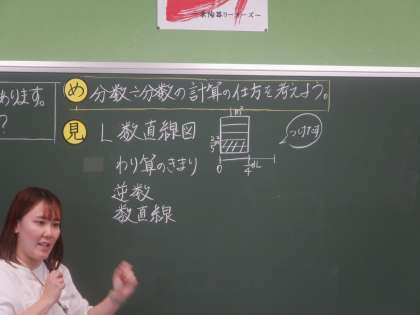 あります。
?
め 分数÷分数の計算の仕方を考えよう。
見 L 数直線図
わり算のきまり
逆数
数直線
1m²
0
dL
つけたす